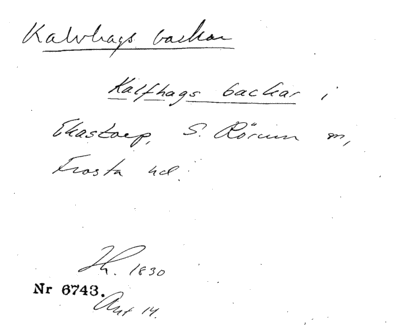 Kalvhags backar
Kalfhags backar i
Ekastorp, S. Rörum sn,
Frosta hd.
Th. 1830
Nr 6743.
Ant 14.